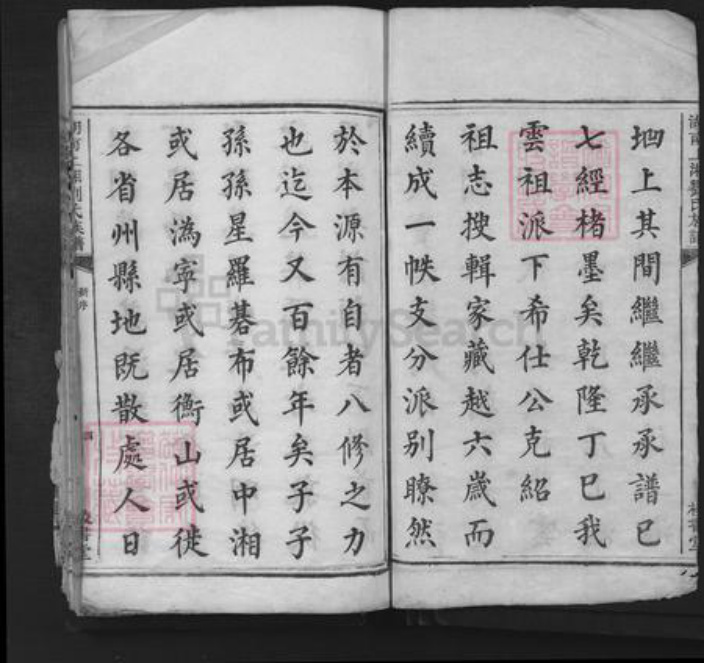 地上其間繼繼承承譜已
七經楮墨矣乾隆丁巳我
雲祖派下希仕公克紹
祖志搜輯家藏越六歲而
續成一帙支分派別瞭然
於本源有自者八修之力
也迄今又百餘年矣子子
孫孫星羅碁布或居中湘
或居溈寧或居衡山或徙
各省州縣地既散處人日
新序
FamilySearch